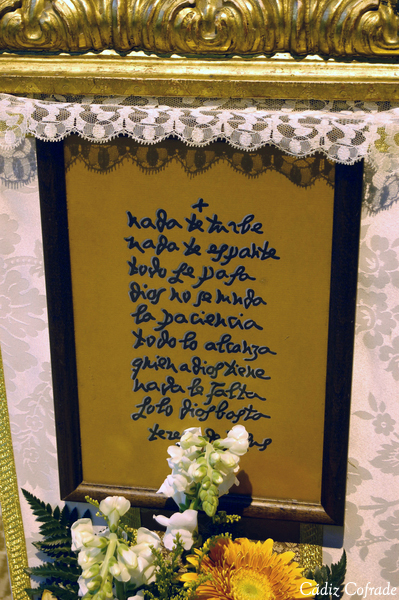 +
nada te turbe
nada te espante
todo se pasa
dios no se muda
la paciencia
todo lo alcanza
quien a dios tiene
nada le falta
solo dios basta
Cádiz Cofrade